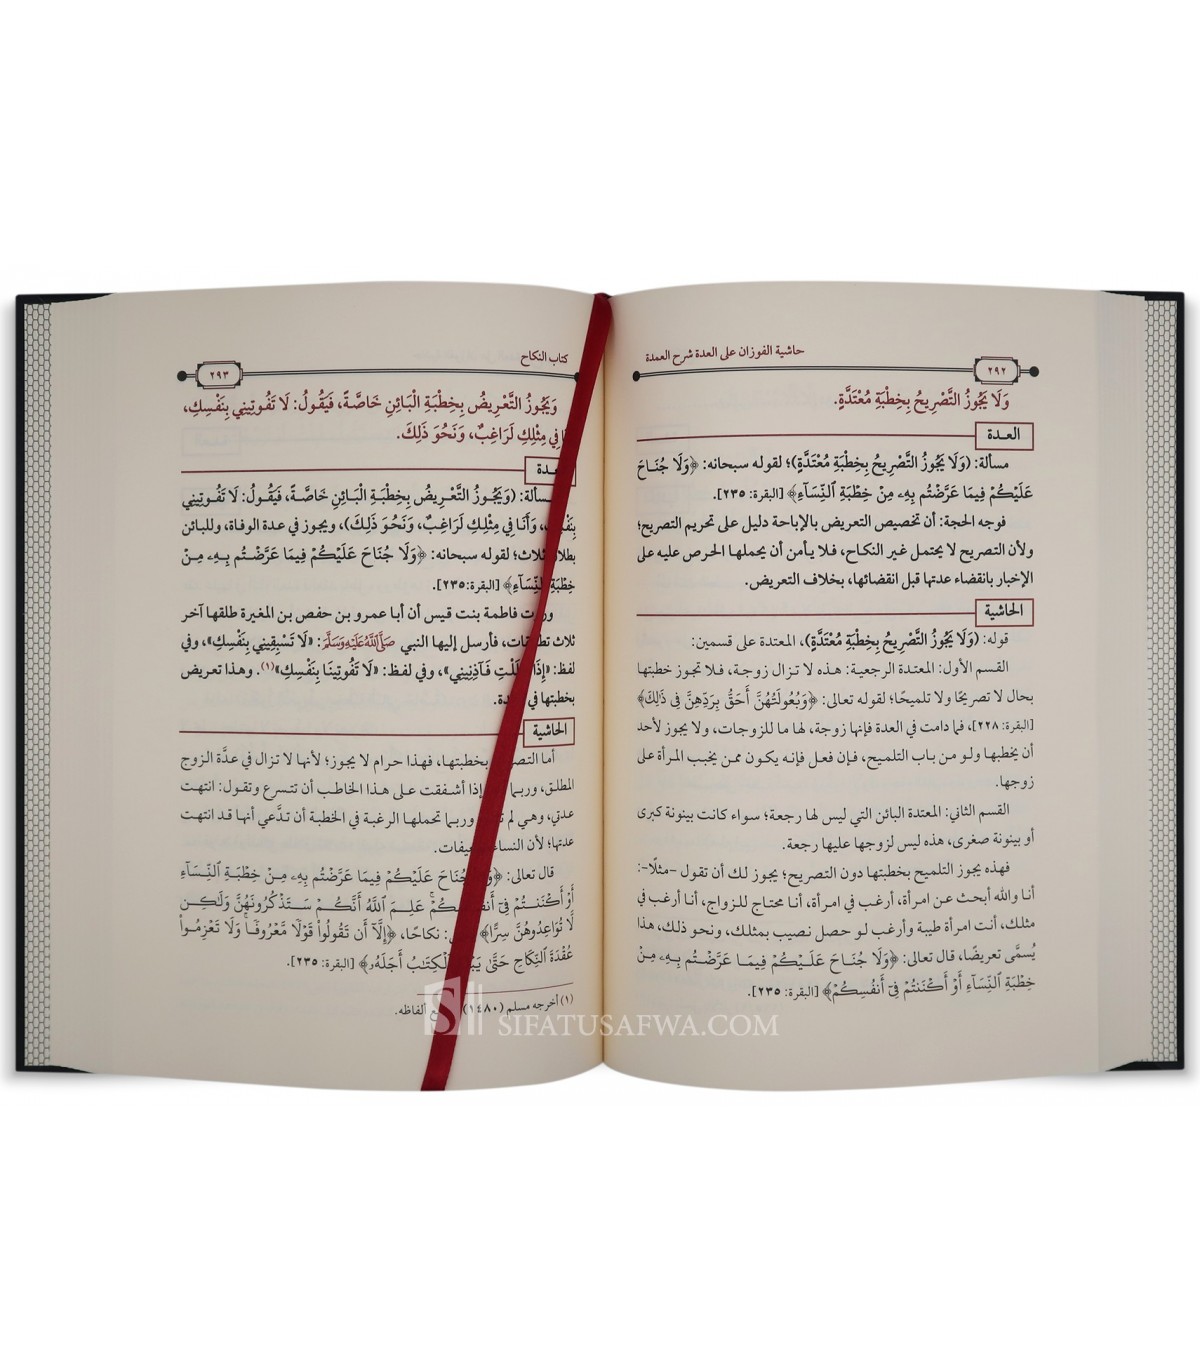 حاشية الفوزان على العدة شرح العمدة
٢٩٢
وَلَا يَجُوزُ التَّصْرِيحُ بِخِطْبَةِ مُعْتَدَّةٍ.
العـدة
مسألة: (وَلَا يَجُوزُ التَّصْرِيحُ بِخِطْبَةِ مُعْتَدَّةٍ)؛ لقوله سبحانه: ﴿وَلَا جُنَاحَ
عَلَيْكُمْ فِيمَا عَرَّضْتُم بِهِۦ مِنْ خِطْبَةِ ٱلنِّسَآءِ﴾ [البقرة: ٢٣٥].
فوجه الحجة: أن تخصيص التعريض بالإباحة دليل على تحريم التصريح؛
ولأن التصريح لا يحتمل غير النكاح، فـلا يأمن أن يحملها الحرص عليه على
الإخبار بانقضاء عدتها قبل انقضائها، بخلاف التعريض.
الحاشية
قوله: (وَلَا يَجُوزُ التَّصْرِيحُ بِخِطْبَةِ مُعْتَدَّةٍ)، المعتدة على قسمين:
القسم الأول: المعتدة الرجعية: هذه لا تـزال زوجة، فـلا تجوز خطبتها
بحال لا تصريحًا ولا تلميحًا؛ لقوله تعالى: ﴿وَبُعُولَتُهُنَّ أَحَقُّ بِرَدِّهِنَّ فِى ذَٰلِكَ﴾
[البقرة: ٢٢٨]، فما دامت في العدة فإنها زوجة، لها ما للزوجات، ولا يجوز لأحد
أن يخطبها ولـو مـن باب التلميح، فـإن فعل فإنه يكون ممن يخبب المرأة على
زوجها.
القسم الثاني: المعتدة البائن التي ليس لها رجعة؛ سواء كانت بينونة كبرى
أو بينونة صغرى، هذه ليس لزوجها عليها رجعة.
فهذه يجوز التلميح بخطبتها دون التصريح؛ يجوز لـك أن تقول -مثلًا-:
أنـا والله أبحث عن امرأة، أرغب في امرأة، أنـا محتاج للزواج، أنـا أرغب في
مثلك، أنـت امرأة طيبة وأرغب لـو حصل نصيب بمثلك، ونحو ذلك، هذا
يُسمَّى تعريضًا، قال تعالى: ﴿وَلَا جُنَاحَ عَلَيْكُمْ فِيمَا عَرَّضْتُم بِهِۦ مِنْ
خِطْبَةِ ٱلنِّسَآءِ أَوْ أَكْنَنتُمْ فِىٓ أَنفُسِكُمْ﴾ [البقرة: ٢٣٥].
كتاب النكاح
٢٩٣
وَيَجُوزُ التَّعْرِيضُ بِخِطْبَةِ الْبَائِنِ خَاصَّةً، فَيَقُولُ: لَا تَفُوتِينِي بِنَفْسِكِ،
فِي مِثْلِكِ لَرَاغِبٌ، وَنَحْوَ ذَلِكَ.
مسألة: (وَيَجُوزُ التَّعْرِيضُ بِخِطْبَةِ الْبَائِنِ خَاصَّةً، فَيَقُولُ: لَا تَفُوتِينِي
وَأَنَا فِي مِثْلِكِ لَرَاغِبٌ، وَنَحْوَ ذَلِكَ)، ويجوز في عدة الوفاة، وللبائن
ثلاث؛ لقوله سبحانه: ﴿وَلَا جُنَاحَ عَلَيْكُمْ فِيمَا عَرَّضْتُم بِهِۦ مِنْ
خِطْبَةِ ٱلنِّسَآءِ﴾ [البقرة: ٢٣٥].
فاطمة بنت قيس أن أبا عمرو بن حفص بن المغيرة طلقها آخر
ثلاث فأرسل إليها النبي صَلَّى اللَّهُ عَلَيْهِ وَسَلَّمَ: «لَا تَسْبِقِينِي بِنَفْسِكِ»، وفي
لفظ: فَـآذِنِينِي»، وفي لفظ: «لَا تَفُوتِينَا بِنَفْسِكِ»(١). وهذا تعريض
بخطبتها في
الحاشية
أما بخطبتها، فهذا حرام لا يجوز؛ لأنها لا تزال في عدَّة الزوج
المطلق، وربـمـا إذا أشفقت على هـذا الخاطب أن تتسرع وتقول: انتهت
عدتي، وهي لم وربـمـا تحملها الرغبة في الخطبة أن تدَّعي أنهـا قد انتهت
عدتها؛ لأن
قال تعالى: ﴿ جُنَاحَ عَلَيْكُمْ فِيمَا عَرَّضْتُم بِهِۦ مِنْ خِطْبَةِ ٱلنِّسَآءِ
أَوْ أَكْنَنتُمْ فِىٓ عَلِمَ ٱللَّهُ أَنَّكُمْ سَتَذْكُرُونَهُنَّ وَلَٰكِن
لَّا تُوَاعِدُوهُنَّ سِرًّا﴾ نكاحًا، ﴿إِلَّآ أَن تَقُولُوا۟ قَوْلًا مَّعْرُوفًا ۚ وَلَا تَعْزِمُوا۟
عُقْدَةَ ٱلنِّكَاحِ حَتَّىٰ ٱلْكِتَٰبُ أَجَلَهُۥ﴾ [البقرة: ٢٣٥].
(١) أخرجه مسلم (١٤٨٠) ألفاظه.
SIFATUSAFWA.COM